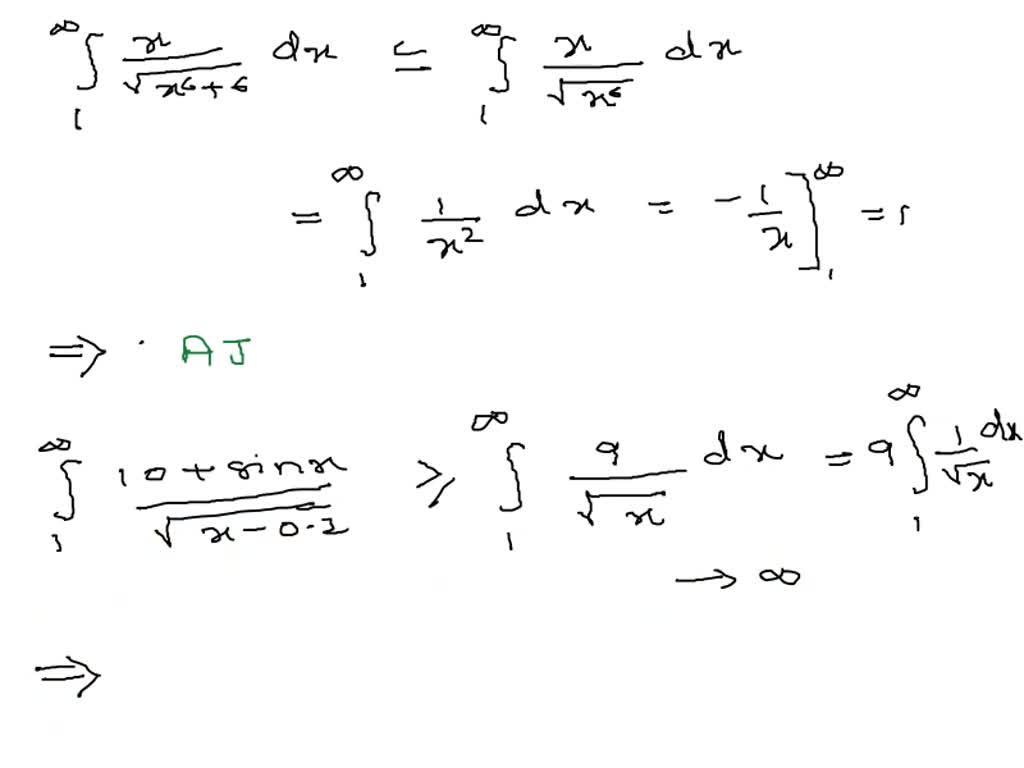 ∞∫1 x/√(x⁶+6) dx ≤ ∞∫1 x/√(x⁶) dx
= ∞∫1 1/x² dx = -1/x]∞1 = 1
⇒ · AJ
∞∫1 10+sinx/√(x-0.2) ≥ ∞∫1 9/√x dx = 9 ∞∫1 1/√x dx
→ ∞
⇒